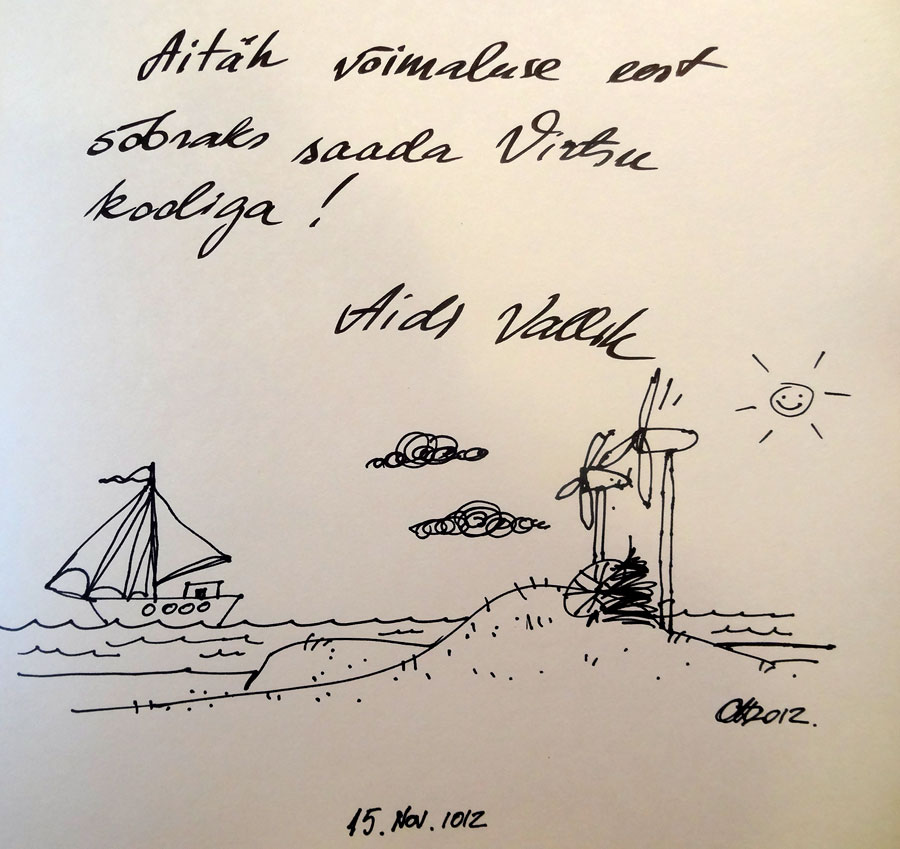 Aitäh võimaluse eest
sõbraks saada Virtsu
kooliga!
Aidi Vallik
2012.
15. Nov. 1012